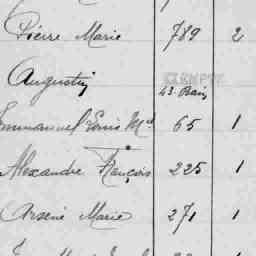 Pierre Marie 789 2
Augustin EXEMPTÉ
43. Bain
Emmanuel Louis Mie 65 1
Alexandre François 225 1
Arsène Marie 271 1